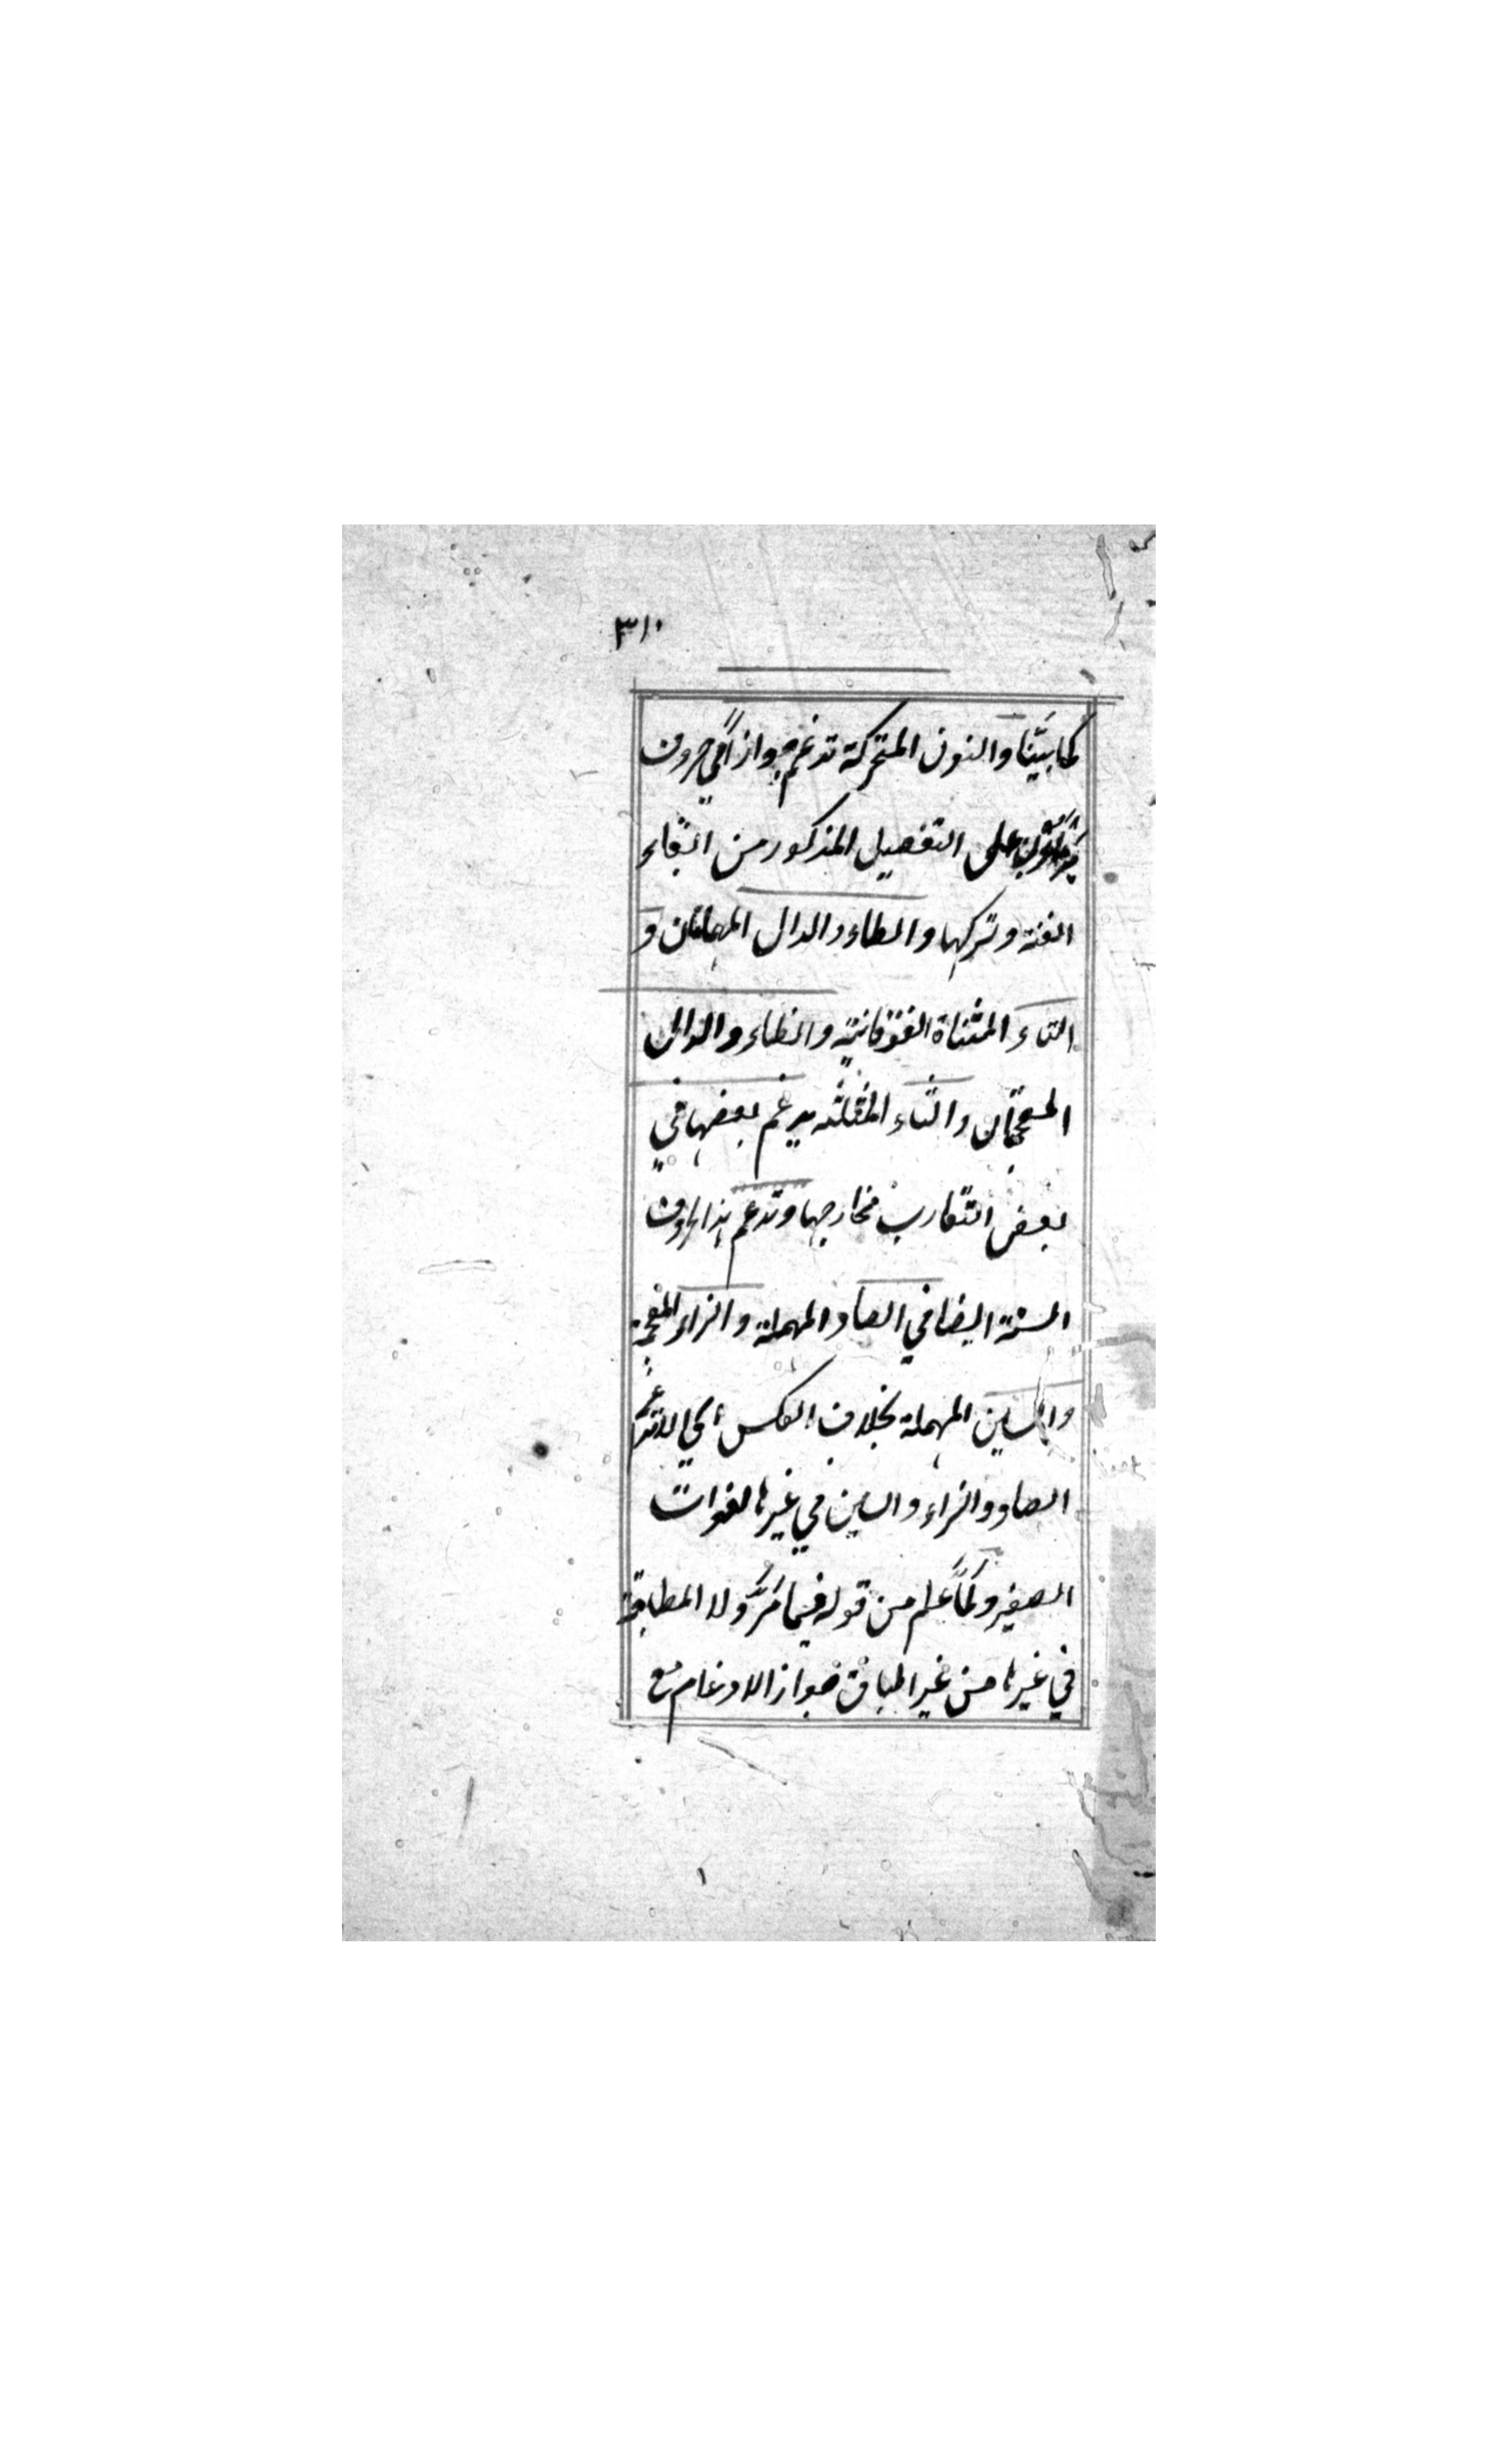 ٣١٠
كما بيّنا والنون المتحركة تدغم جوازاً في حروف
يرملون على التفصيل المذكور من ابقاء
الغنة وتركها والطاء والدال المهملتان و
التاء المثناة الفوقانية والظاء والذال
المعجمتان والثاء المثلثة يدغم بعضها في
بعض لتقارب مخارجها وتدغم هذه الحروف
الستة ايضا في الصاد المهملة والزاء المعجمة
والسين المهملة بخلاف العكس اي لا تدغم
الصاد والزاء والسين في غيرها لفوات
الصفير ولما علم من قوله فيما مر ولا المطابقة
في غيرها من غير اطباق جواز الادغام مع